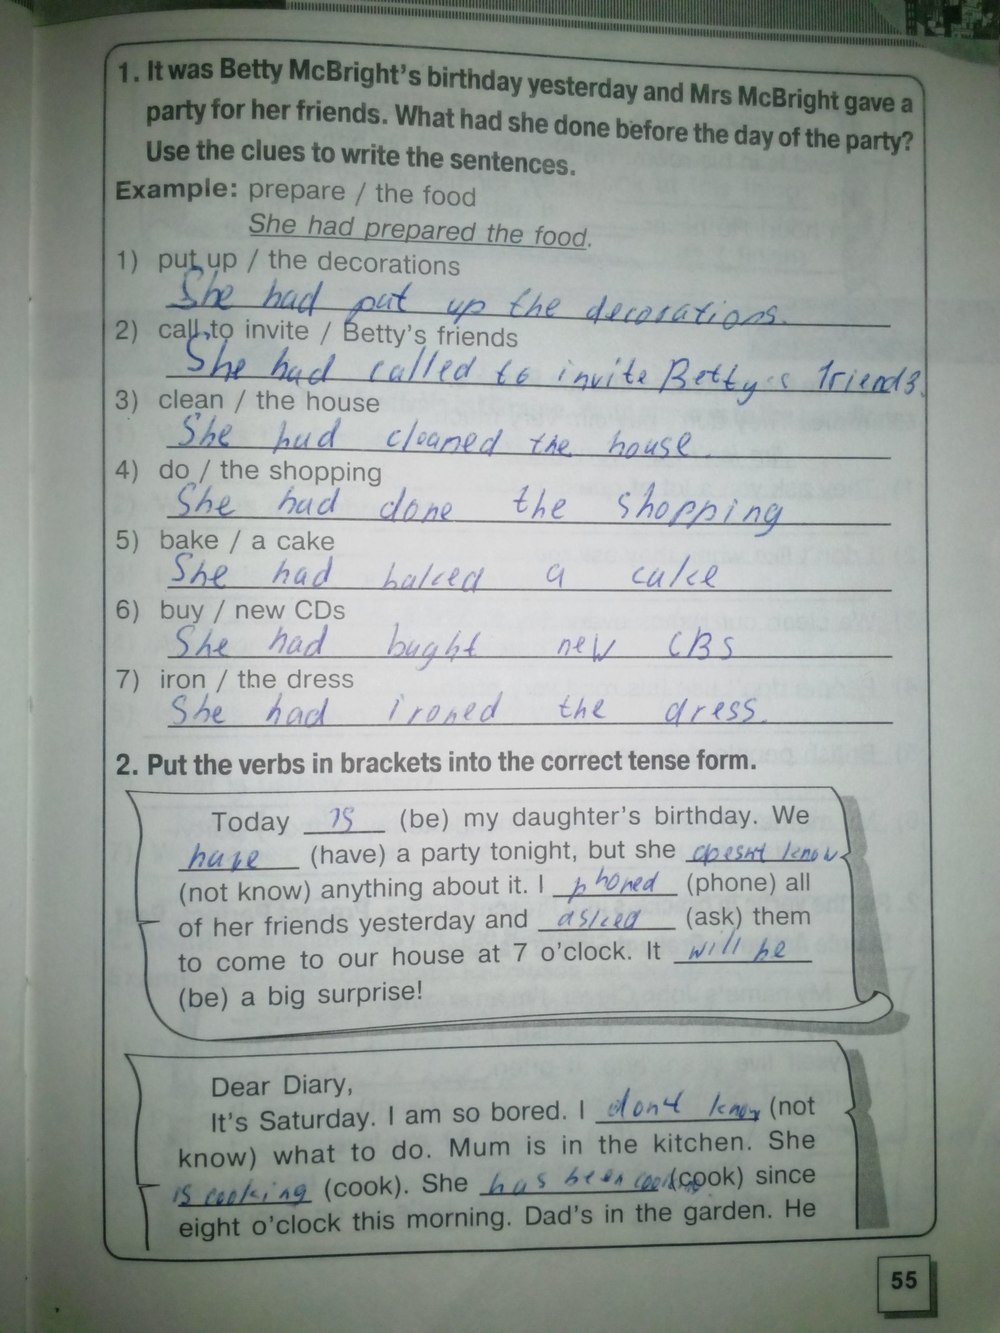 1. It was Betty McBright's birthday yesterday and Mrs McBright gave a
party for her friends. What had she done before the day of the party?
Use the clues to write the sentences.
Example: prepare / the food
She had prepared the food.
1) put up / the decorations
She had put up the decorations.
2) call to invite / Betty's friends
She had called to invite Betty's friends.
3) clean / the house
She had cleaned the house.
4) do / the shopping
She had done the shopping
5) bake / a cake
She had baked a cake
6) buy / new CDs
She had bught new CBS
7) iron / the dress
She had ironed the dress.
2. Put the verbs in brackets into the correct tense form.
Today is (be) my daughter's birthday. We
have (have) a party tonight, but she doesnt know
(not know) anything about it. I phoned (phone) all
of her friends yesterday and asked (ask) them
to come to our house at 7 o'clock. It will be
(be) a big surprise!
Dear Diary,
It's Saturday. I am so bored. I dont know (not
know) what to do. Mum is in the kitchen. She
is cooking (cook). She has been cooking (cook) since
eight o'clock this morning. Dad's in the garden. He
55